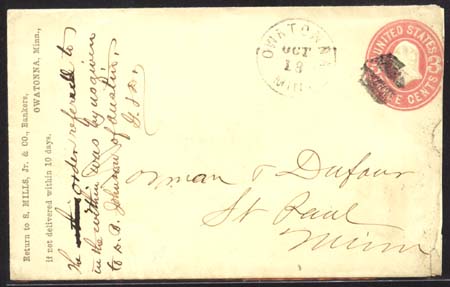 Return to S. MILLS, Jr. & CO., Bankers,
OWATONNA, Minn.,
if not delivered within 10 days.
The order referred to
in the within was by us given
to A. B. Johnson of Austin,
OWATONNA
OCT
18
MINN
UNITED STATES
THREE CENTS
Dufour
St Paul
Minn